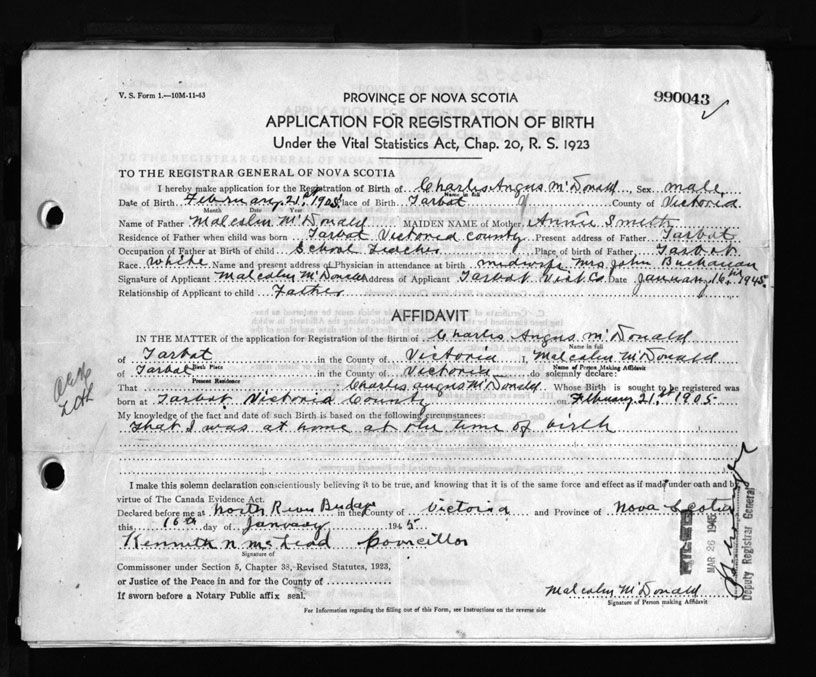 V. S. Form 1.—10M-11-43
PROVINCE OF NOVA SCOTIA
990043
APPLICATION FOR REGISTRATION OF BIRTH
Under the Vital Statistics Act, Chap. 20, R. S. 1923
TO THE REGISTRAR GENERAL OF NOVA SCOTIA
I hereby make application for the Registration of Birth of Charles Angus McDonald, Sex male
Name in full
Date of Birth February 21st 1905 Place of Birth Tarbat County of Victoria
Month Date Year
Name of Father Malcolm McDonald MAIDEN NAME of Mother Annie Smith
Residence of Father when child was born Tarbat Victoria County Present address of Father Tarbat
Occupation of Father at Birth of child School Teacher Place of birth of Father Tarbat
Race white Name and present address of Physician in attendance at birth midwife Mrs John Buchanan
Signature of Applicant Malcolm McDonald Address of Applicant Tarbat Vict Co. Date January 16th 1945
Relationship of Applicant to child Father
AFFIDAVIT
IN THE MATTER of the application for Registration of the Birth of Charles Angus McDonald
Name in full
of Tarbat in the County of Victoria I, Malcolm McDonald
Birth Place Name of Person Making Affidavit
of Tarbat in the County of Victoria do solemnly declare:
Present Residence
That Charles Angus McDonald. Whose Birth is sought to be registered was
born at Tarbat Victoria County on February 21st 1905
My knowledge of the fact and date of such Birth is based on the following circumstances:
that I was at home at the time of birth
I make this solemn declaration conscientiously believing it to be true, and knowing that it is of the same force and effect as if made under oath and by
virtue of The Canada Evidence Act.
Declared before me at North River Bridge in the County of Victoria and Province of Nova Scotia
this 16th day of January 1945
Kenneth N McLeod Councillor
Signature of
Commissioner under Section 5, Chapter 38, Revised Statutes, 1923,
or Justice of the Peace in and for the County of
If sworn before a Notary Public affix seal.
Malcolm McDonald
Signature of Person making Affidavit
For Information regarding the filling out of this Form, see Instructions on the reverse side
FILED
MAR 26 1945
Deputy Registrar General